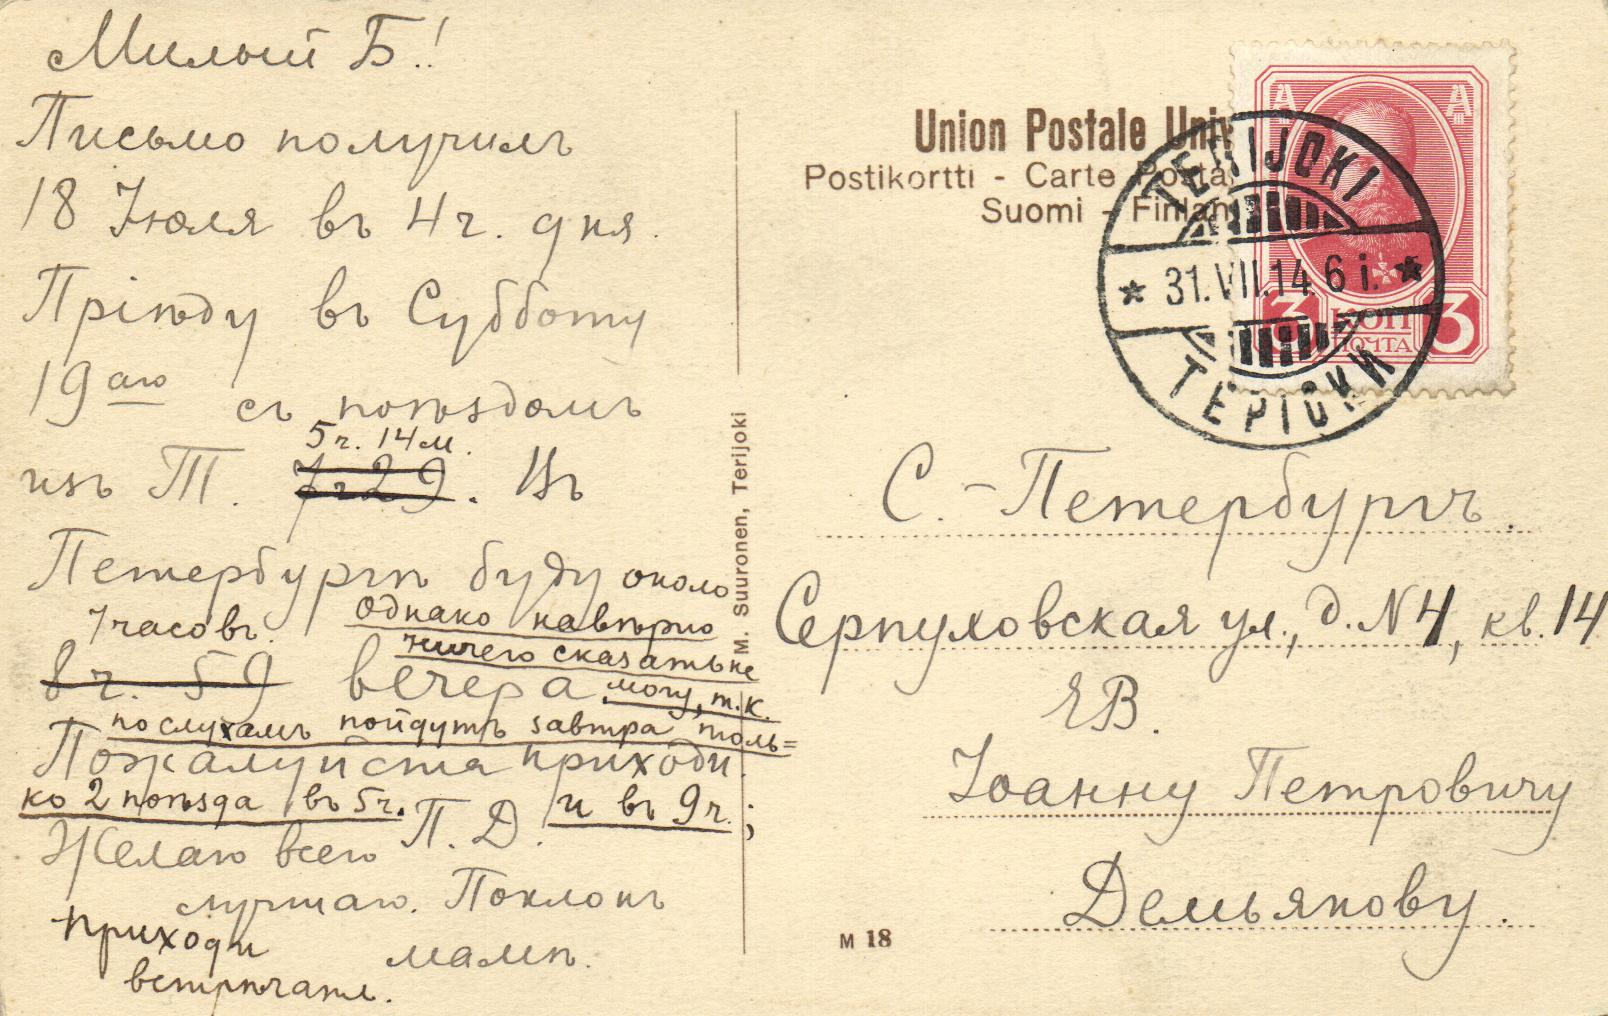 Милый Б.!
Письмо получилъ
18 Іюля въ 4 ч. дня.
Пріѣду въ Субботу
19аго съ поѣздомъ
5 ч. 14 м.
изъ Т. 7 ч 29. Въ
Петербургѣ буду около
7 часовъ.
8 ч. 59 вечера
Однако навѣрно
ничего сказать не
могу, т.к.
по слухамъ пойдутъ завтра толь=
ко 2 поѣзда въ 5 ч. и въ 9 ч.;
Пожалуйста приходи.
П. Д.
Желаю всего
лучшаго. Поклонъ
мамѣ.
Приходи
встрѣчать.
Union Postale Univ
Postikortti - Carte Posta
Suomi - Finlan
TERIJOKI
31.VII.14. 6 i.
ТЕРІОКИ
3 КОП 3
ПОЧТА
M. Suuronen, Terijoki
С.-Петербургъ.
Серпуховская ул., д. N 4, кв. 14
ЕВ.
Іоанну Петровичу
Демьянову.
M 18